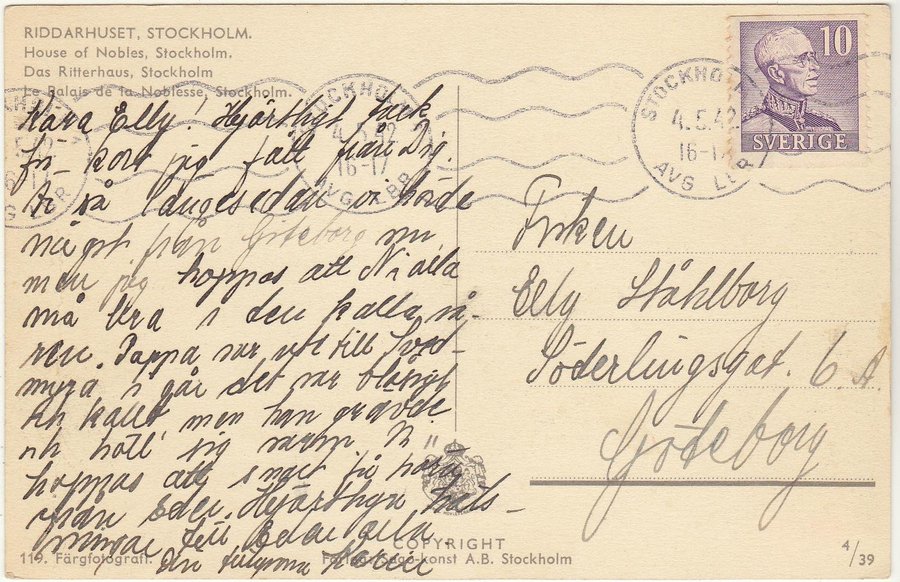 RIDDARHUSET, STOCKHOLM.
House of Nobles, Stockholm.
Das Ritterhaus, Stockholm
Le Palais de la Noblesse, Stockholm.
Kära Elly! Hjärtligt tack
för kort jag fått från Dig.
så längesedan vi hörde
något från Göteborg nu,
men jag hoppas att Ni alla
må bra i den kalla vå-
ren. Pappa var ut till
myra i går det var blåsigt
och kallt men han grävde
och höll sig varm. Vi
hoppas att snart få höra
från Eder. Hjärtliga häls-
ningar till Eder alla
Din tillgivna
STOCKHOLM
4.5.42
16-17
AVG LBR
STOCKHOLM
4.5.42
16-17
AVG LBR
10
SVERIGE
Fröken
Elly Ståhlborg
Söderlingsgat. 6 A.
Göteborg
COPYRIGHT
119. Färgfotografi.
A.B. Stockholm
4/39